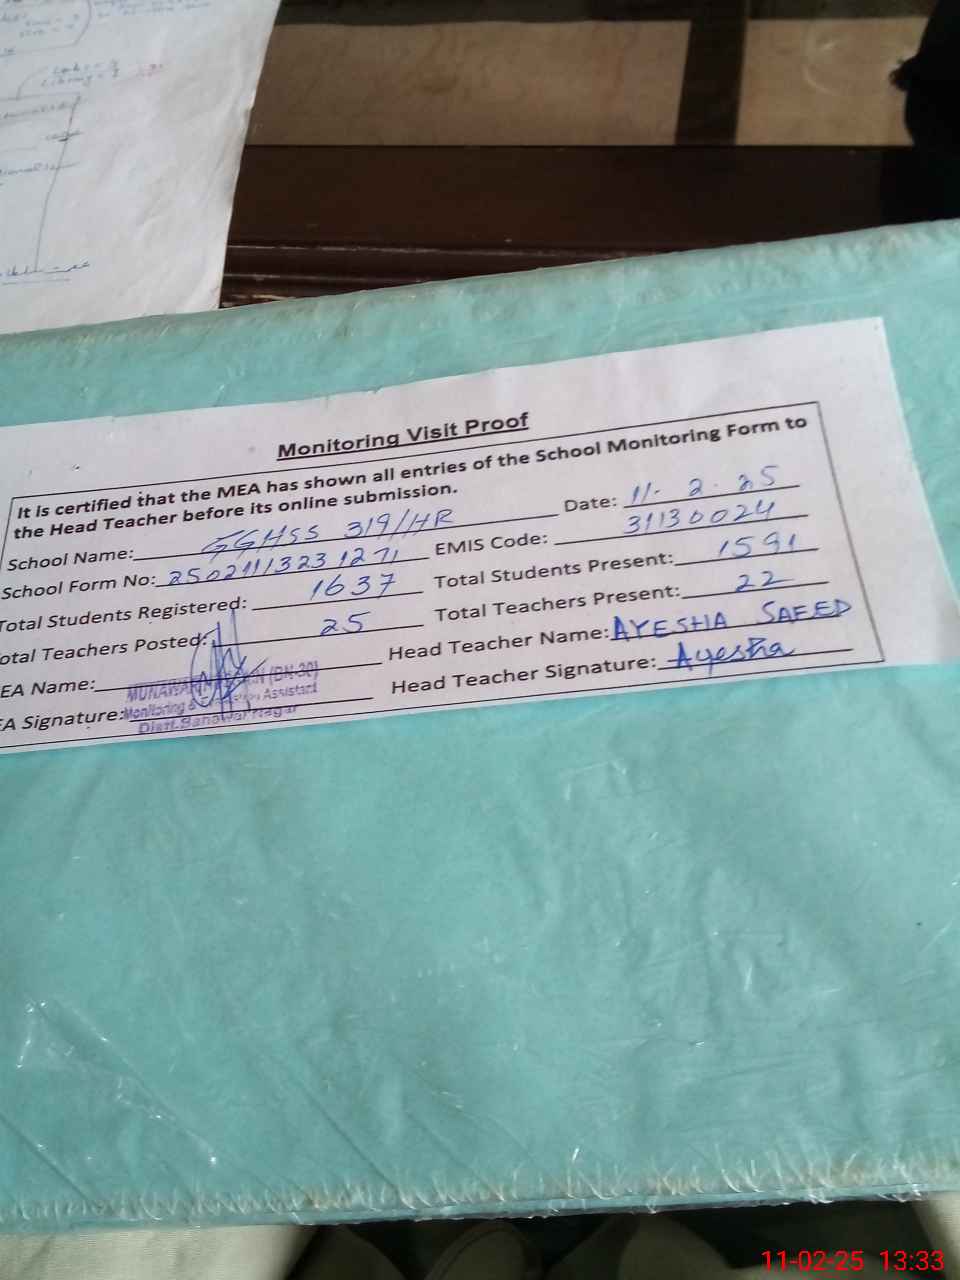 Monitoring Visit Proof
It is certified that the MEA has shown all entries of the School Monitoring Form to
the Head Teacher before its online submission.
School Name: GGHSS 319/HR Date: 11. 2. 25
School Form No: 25021113231271 EMIS Code: 31130024
Total Students Registered: 1637 Total Students Present: 1591
otal Teachers Posted: 25 Total Teachers Present: 22
EA Name: Head Teacher Name: AYESHA SAEED
EA Signature: Head Teacher Signature: Ayesha
(BN-30)
Monitoring & Assistant
Distt. Bahawal Nagar
11-02-25 13:33